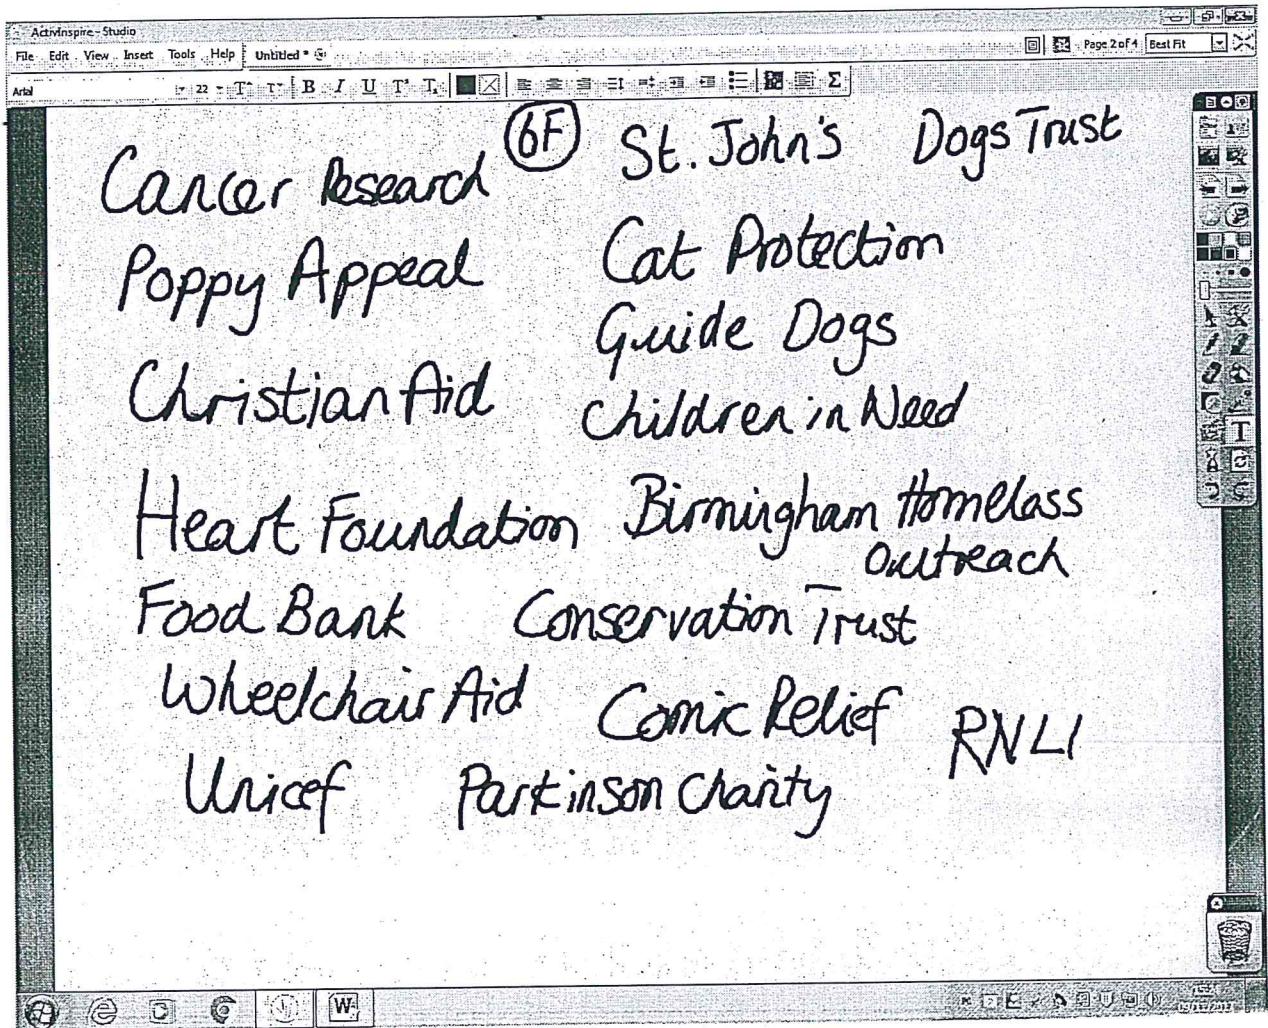 ActivInspire - Studio
File Edit View Insert Tools Help Untitled * Page 2 of 4 Best Fit
Arial 22 B I U Σ
6F
St. John's Dogs Trust
Cancer Research
Poppy Appeal Cat Protection
Guide Dogs
Christian Aid Children in Need
Heart Foundation Birmingham Homeless
Outreach
Food Bank Conservation Trust
Wheelchair Aid Comic Relief RNLI
Unicef Parkinson Charity